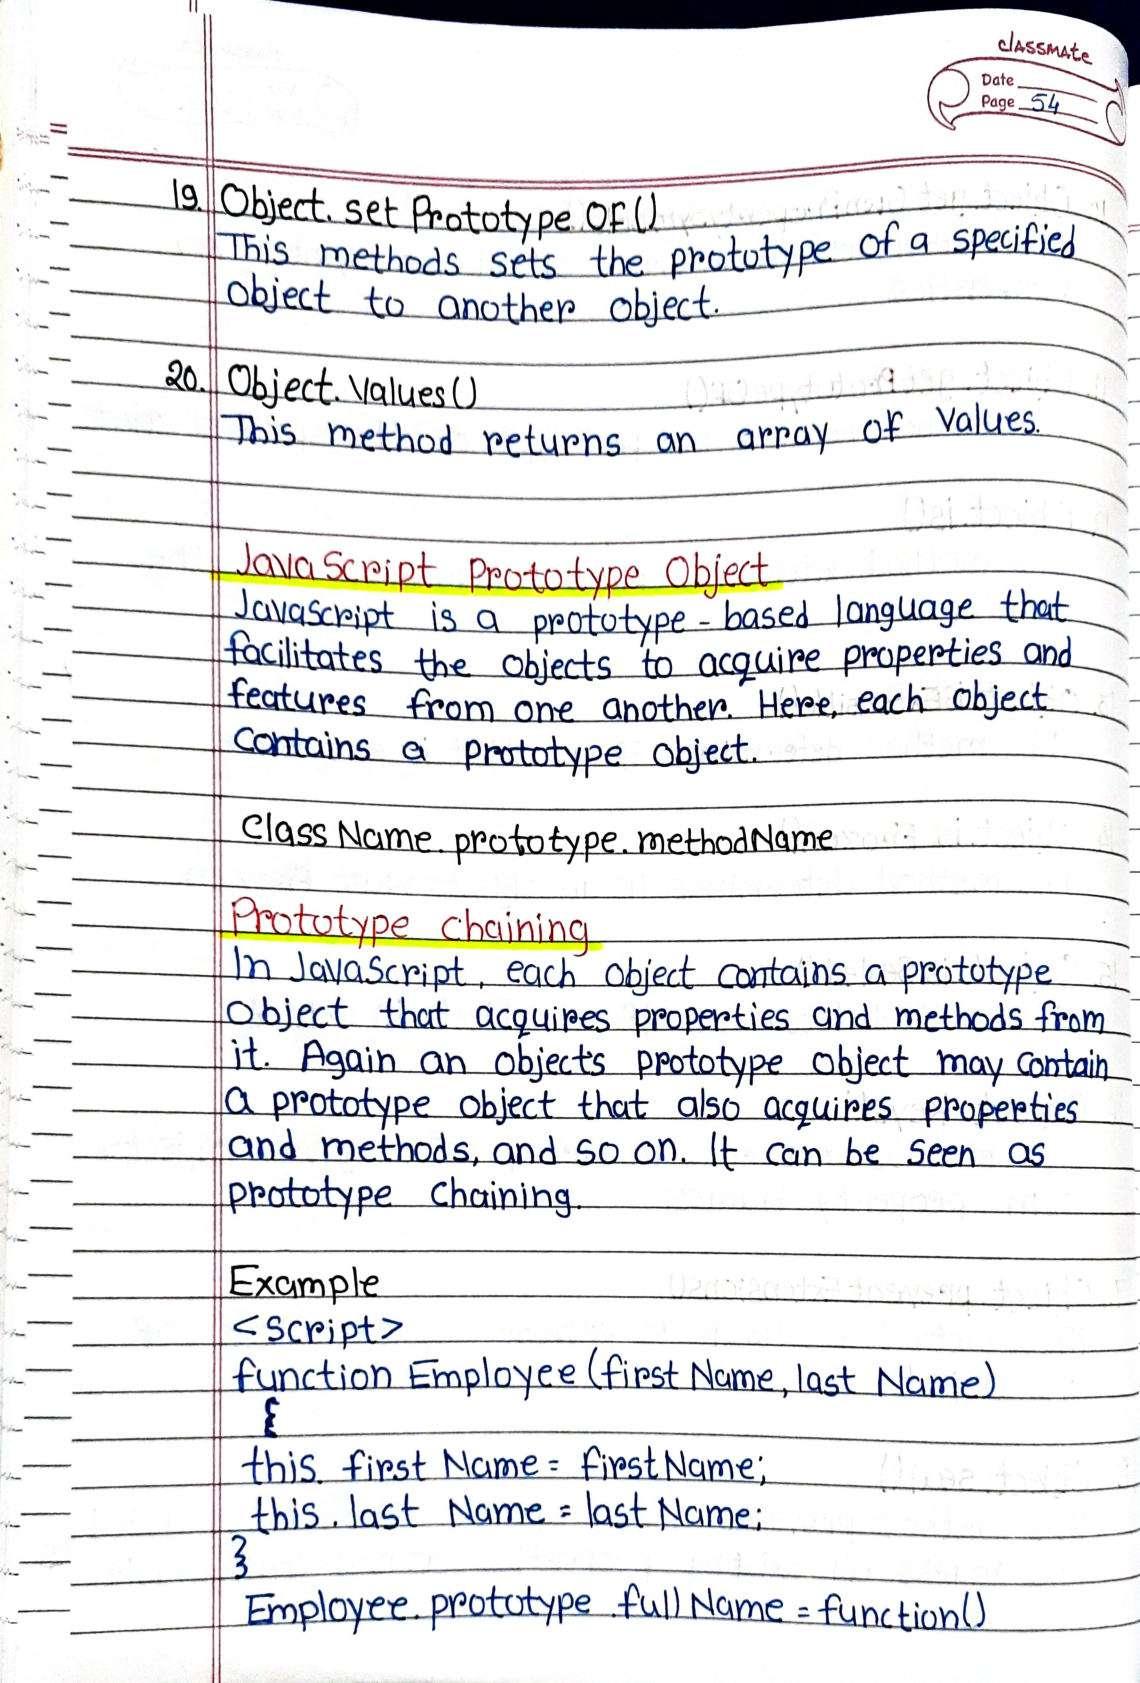 classmate
Date
Page 54
19. Object. set Prototype Of()
This methods sets the prototype of a specified
object to another object.
20. Object. Values()
This method returns an array of Values.
JavaScript Prototype Object
Javascript is a prototype - based language that
facilitates the objects to acquire properties and
features from one another. Here, each object
contains a prototype object.
Class Name. prototype. methodName
Prototype chaining
In JavaScript, each object contains a prototype
object that acquires properties and methods from
it. Again an object's prototype object may contain
a prototype object that also acquires properties
and methods, and so on. It can be seen as
prototype chaining.
Example
<Script>
function Employee (first Name, last Name)
{
this. first Name = firstName;
this. last Name = last Name;
}
Employee. prototype .full Name = function()